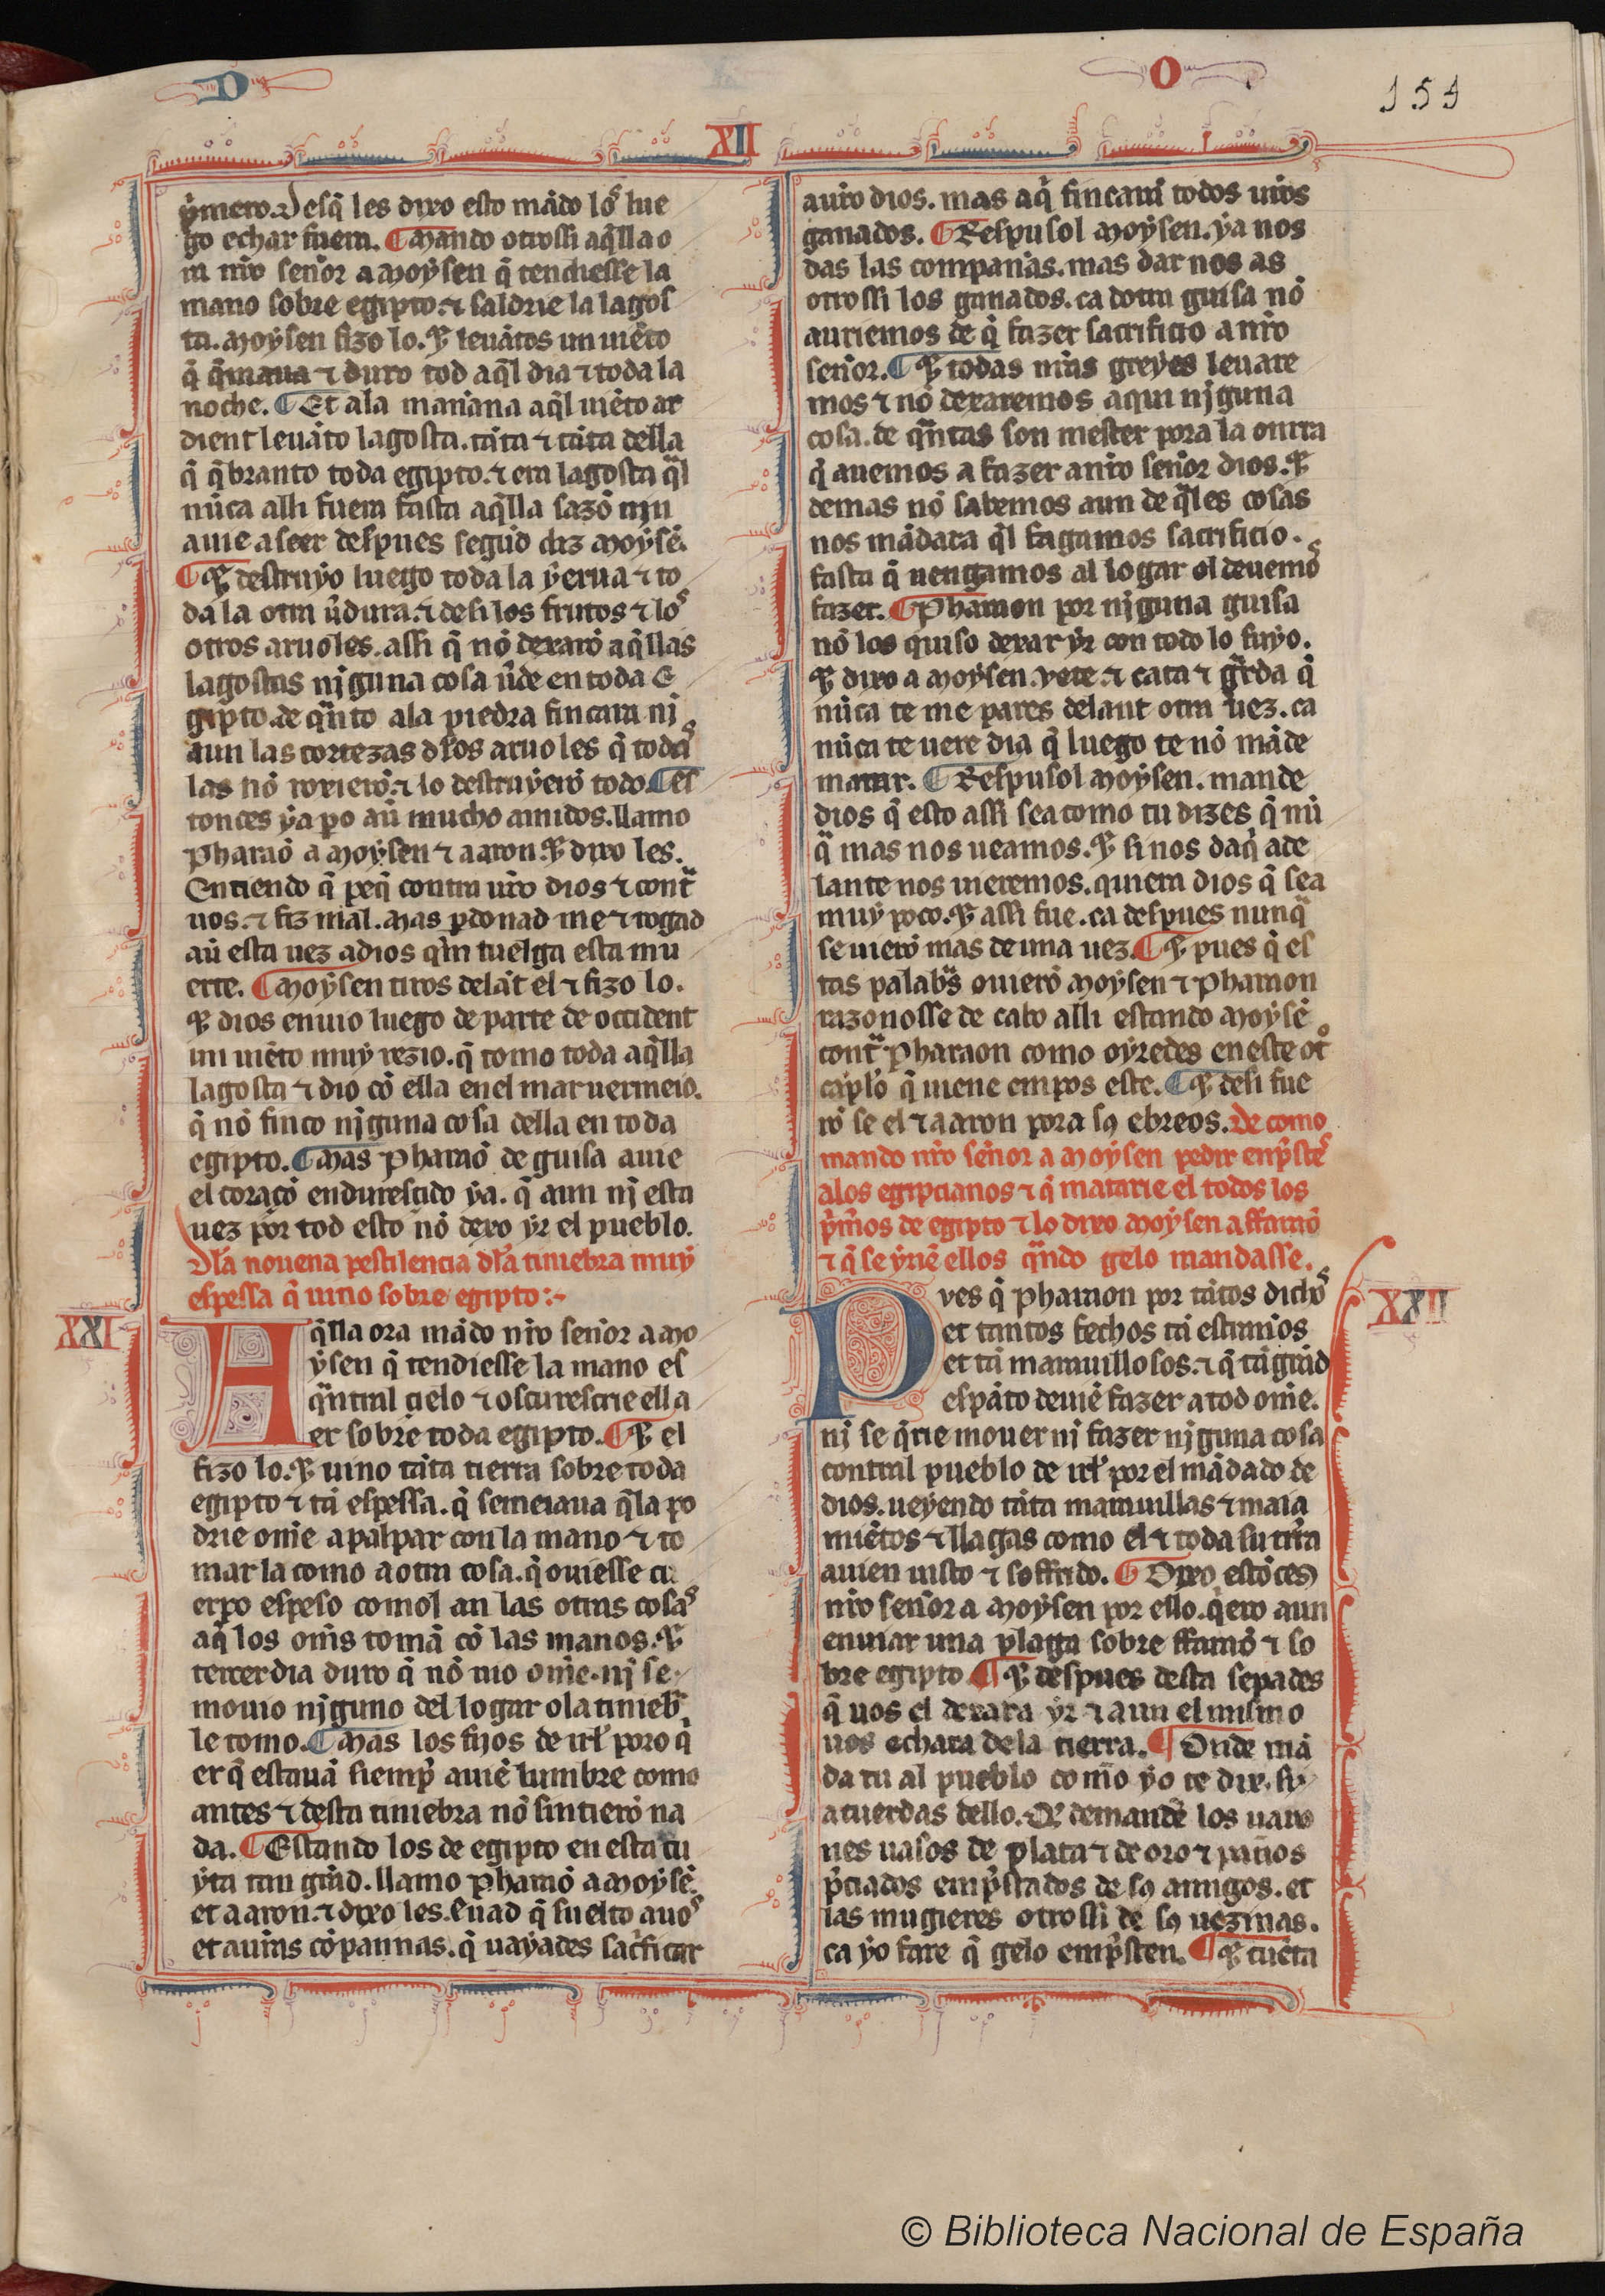 D
O
151
XII
p̃mero. Desq̃ les dixo esto mãdo los lue
go echar fuera. ¶ Mando otrossi aq̃lla o
ra nr̃o sennor a Moysen q̃ tendiesse la
mano sobre egipto. ⁊ saldrie la lagos
ta. Moysen fizo lo. ⁊ leuãtos un uiẽto
q̃ q̃maua ⁊ duro tod aq̃l dia ⁊ toda la
noche. ¶ Et ala mannana aq̃l uiẽto ar
dient leuãto lagosta. tãta ⁊ tãta della
q̃ q̃branto toda egipto. ⁊ era lagosta q̃l
nũca alli fuera fasta aq̃lla sazõ nin
auie a seer despues segũd diz Moysẽ.
¶ ⁊ destruyo luego toda la yerua ⁊ to
da la otra ũdura. ⁊ desi los frutos ⁊ los
otros aruoles. assi q̃ nõ dexarõ aq̃llas
lagostas njguna cosa ũde en toda E
gipto. de q̃nto ala piedra fincara nj
aun las cortezas dlos aruoles q̃ todas
las nõ royerõ. ⁊ lo destruyerõ todo. ¶ es
tonces ya po aũ mucho amidos. llamo
Pharaõ a Moysen ⁊ aaron. ⁊ dixo les.
Entiendo q̃ peq̃ contra ur̃o dios ⁊ contra
uos. ⁊ fiz mal. Mas pdonad me ⁊ rogad
aũ esta uez adios q̃m tuelga esta mu
erte. ¶ Moysen tiros delãt el ⁊ fizo lo.
⁊ dios enuio luego de parte de occident
un uiẽto muy rezio. q̃ tomo toda aq̃lla
lagosta ⁊ dio cõ ella enel mar uermeio.
q̃ nõ finco njguna cosa della en toda
egipto. ¶ Mas Pharaõ de guisa auie
el coraçõ endurescido ya. q̃ aun nj esta
uez por tod esto nõ dexo yr el pueblo.
Dla nouena pestilencia dla tiniebra muy
espessa q̃ uino sobre egipto:-
XXI
Aq̃lla ora mãdo nr̃o sennor a mo
ysen q̃ tendiesse la mano es
q̃ntral cielo ⁊ oscurescrie ell a
er sobre toda egipto. ¶ ⁊ el
fizo lo. ⁊ uino tãta tierra sobre toda
egipto ⁊ tã espessa. q̃ semeiaua q̃la po
drie om̃e apalpar con la mano ⁊ to
mar la como a otra cosa. q̃ ouiesse cu
erpo espeso comol an las otras cosas
aq̃ los om̃s tomã cõ las manos. ⁊
tercer dia duro q̃ nõ uio om̃e. nj se
mouio njguno del logar o la tinieb̃
le tomo. ¶ Mas los fijos de irl̃ poro q̃
er q̃ estauã siemp̃ auiẽ lumbre como
antes ⁊ desta tiniebra nõ sintierõ na
da. ¶ Estando los de egipto en esta cu
yta tan grãd. llamo Pharaõ a Moysẽ.
et aaron. ⁊ dixo les. Euad q̃ suelto auos
et aur̃as cõpannas. q̃ uayades sacrificar
auro dios. mas aq̃ fincarã todos ur̃os
ganados. ¶ Respusol Moysen. ya nos
das las companas. mas dar nos as
otrossi los ganados. ca dotra guisa nõ
auriemos de q̃ fazer sacrificio a nr̃o
sennor. ¶ ⁊ todas nr̃as greyes leuare
mos ⁊ nõ dexaremos aqui njguna
cosa. de q̃ntas son mester pora la onrra
q̃ auemos a fazer a nr̃o sennor dios. ⁊
demas nõ sabemos aun de q̃les cosas
nos mãdara q̃l fagamos sacrificio.
fasta q̃ uengamos al logar ol deuemos
fazer. ¶ Pharaon por njguna guisa
nõ los quiso dexar yr con todo lo suyo.
⁊ dixo a Moysen. uete. ⁊ cata ⁊ g̃rda q̃
nũca te me pares delant otra uez. ca
nũca te uere dia q̃ luego te nõ mãde
matar. ¶ Respusol Moysen. mande
dios q̃ esto assi sea como tu dizes q̃ nũ
q̃ mas nos ueamos. ⁊ si nos daq̃ ade
lante nos uieremos. quiera dios q̃ sea
muy poco. ⁊ assi fue. ca despues nunq̃
se uierõ mas de una uez. ¶ ⁊ pues q̃ es
tas palabr̃s ouierõ Moysen ⁊ Pharaon
razonosse de cabo alli estando Moysẽ
contra Pharaon como oyredes en este ot̃o
caplo q̃ uiene empos este. ¶ ⁊ desi fue
rõ se el ⁊ aaron pora sos ebreos. De como
mando nr̃o sennor a Moysen pedir emp̃stes
alos egipcianos ⁊ q̃ matarie el todos los
p̃m̃os de egipto ⁊ lo dixo Moysen a ffaraõ
⁊ q̃ se yriẽ ellos q̃ndo gelo mandasse.
XXII
Pves q̃ Pharaon por tãtos dichos
et tantos fechos tã estrannos
et tã marauillosos. ⁊ q̃ tã grãd
espãto deuiẽ fazer a tod om̃e.
nj se q̃rie mouer nj fazer njguna cosa
contral pueblo de irl̃ por el mãdado de
dios. ueyendo tãta marauillas ⁊ maia
miẽtos ⁊ llagas como el ⁊ toda su tirra
auien uisto ⁊ soffrido. ¶ Dixo estõces
nr̃o sennor a Moysen por ello. q̃ero aun
enuiar una plaga sobre ffaraõ ⁊ so
bre egipto ¶ ⁊ despues desta sepades
q̃ uos el dexara yr ⁊ aun el mismo
uos echara de la tierra. ¶ Onde mã
da tu al pueblo como yo te dix. si
acuerdas dello. Q̃ demandẽ los uaro
nes uasos de plata ⁊ de oro ⁊ pannos
p̃ciados emp̃stados de sos amigos. et
las mugieres otrossi de sos uezinas.
ca yo fare q̃ gelo emp̃sten. ¶ ⁊ cuẽta
© Biblioteca Nacional de España